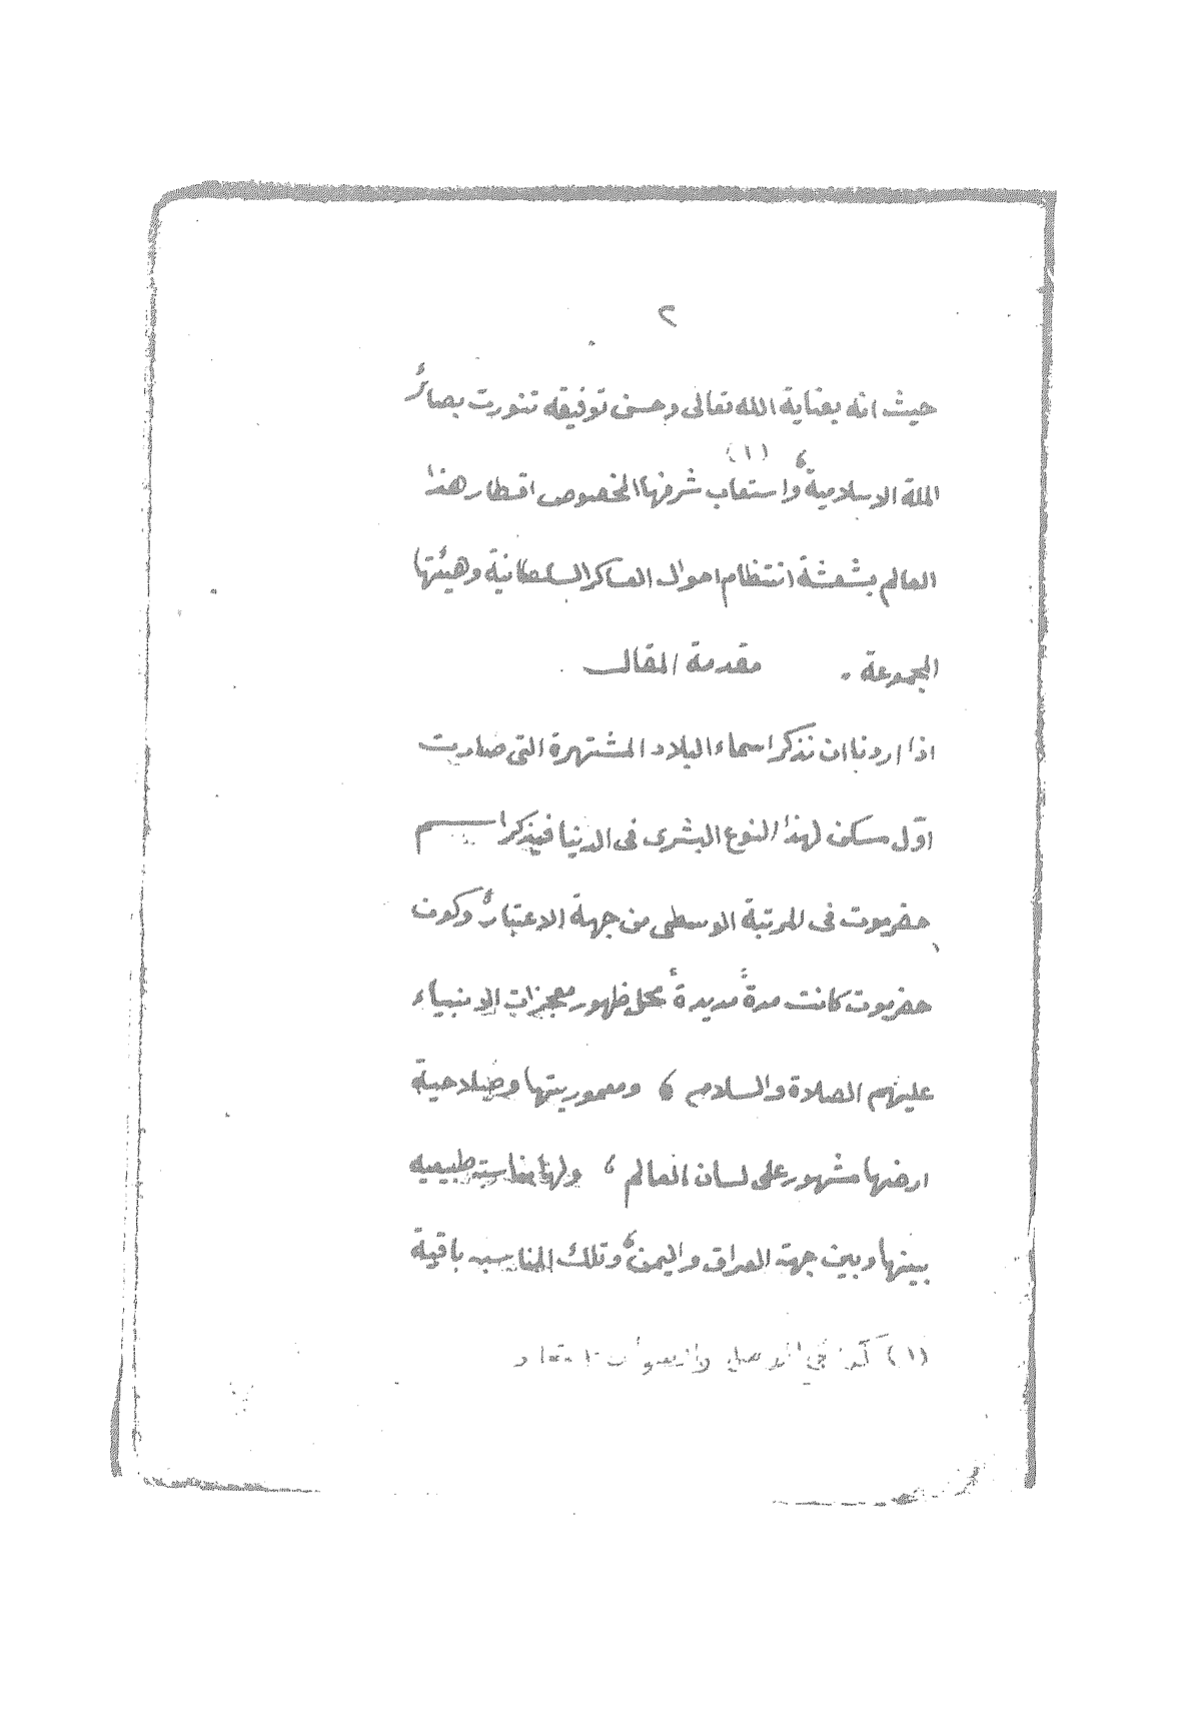 ٢
حيث انه بعناية الله تعالى وحسن توفيقه تنورت بصائر
الملة الاسلامية، واستعاب (١) شرفها المخصوص اقطار هذا
العالم بشعشة انتظام احوال العساكر السلطانية وهيئتها
المجموعة . مقدمة المقال .
اذا اردنا ان نذكر اسماء البلاد المشتهرة التى صارت
اوّل مسكن لهذا النوع البشرى فى الدنيا فيذكر اسم
حضرموت فى المرتبة الوسطى من جهة الاعتبار، وكون
حضرموت كانت مدةً مديدةً محل ظهور معجزات الانبياء
عليهم الصلاة والسلام، ومعموريتها وصلاحية
ارضها مشهور على لسان العالم، ولها مناسبة طبيعيه
بينها وبين جهة العراق واليمن، وتلك المناسبه باقية
(١) كذا في الاصل والصواب